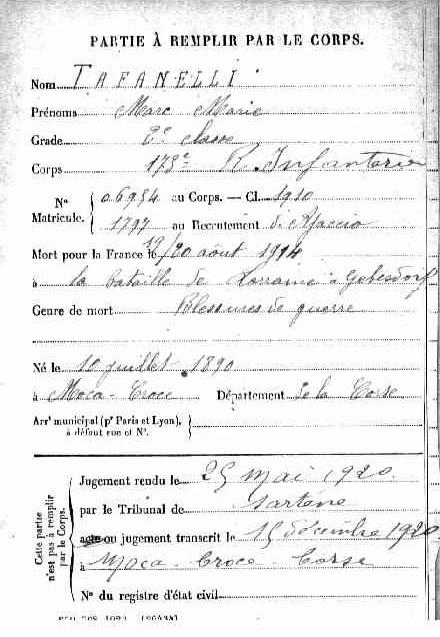 PARTIE À REMPLIR PAR LE CORPS.
Nom TAFANELLI
Prénoms Marc Marie
Grade 2e classe
Corps 173e R. Infanterie
No Matricule. { 06954 au Corps. — Cl. 1910
1797 au Recrutement d'Ajaccio
Mort pour la France le 19/20 août 1914
à la bataille de Lorraine à Gebesdorf
Genre de mort Blessures de guerre
Né le 10 juillet 1890
à Moca-Croce Département de la Corse
Arrt municipal (pr Paris et Lyon), à défaut rue et No.
Cette partie n'est pas à remplir par le Corps.
Jugement rendu le 25 mai 1920
par le Tribunal de Sartène
acte ou jugement transcrit le 15 décembre 1920
à Moca-Croce-Corse
No du registre d'état civil